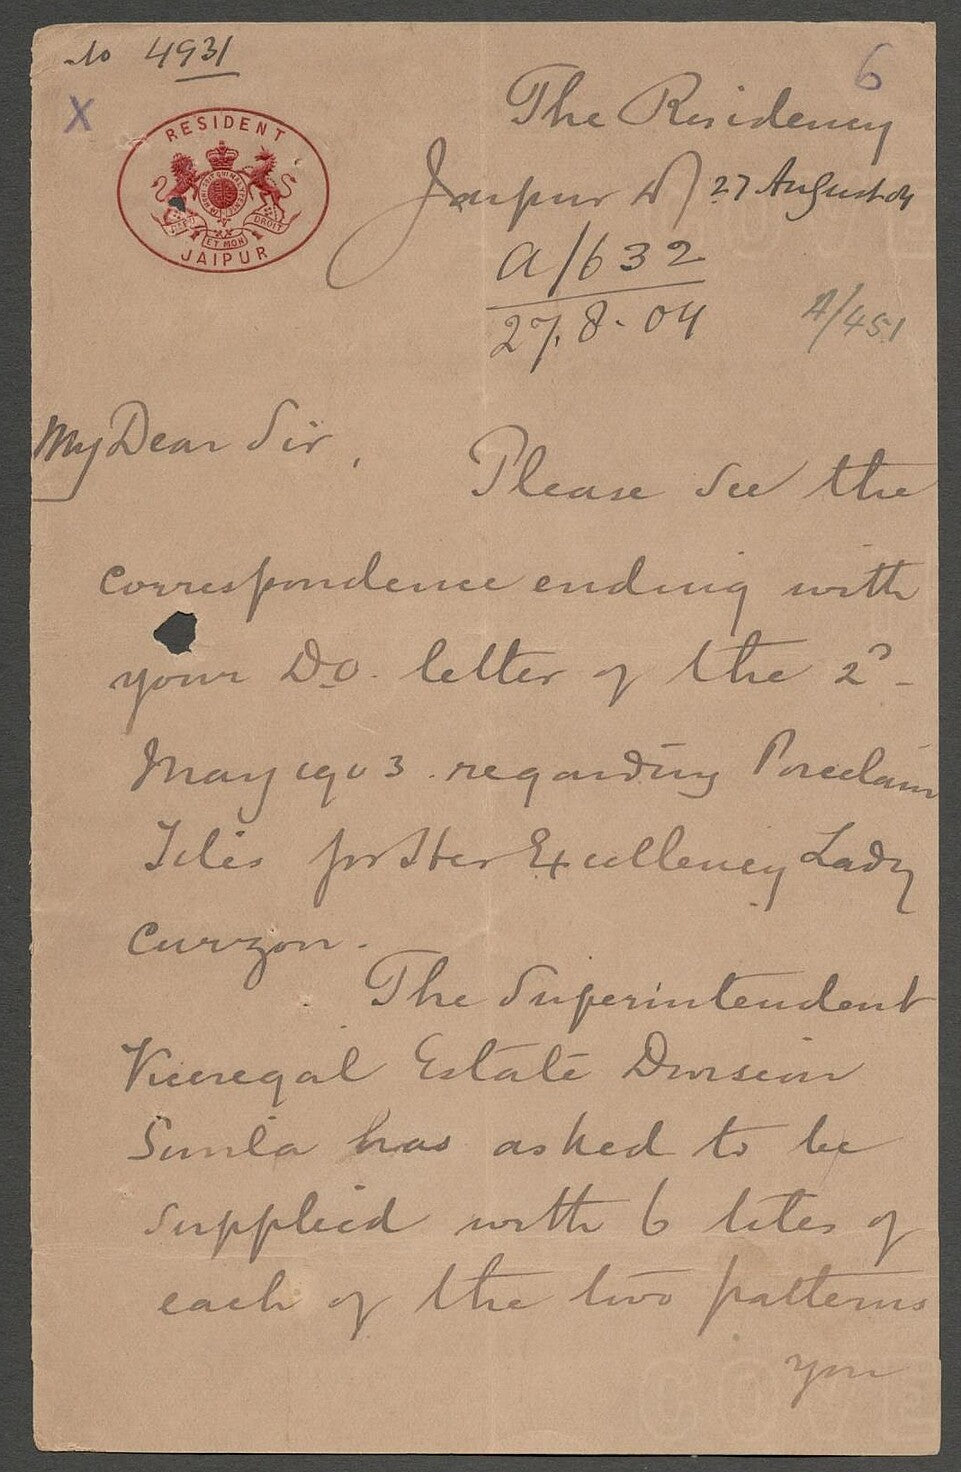 No 4931
6
X
RESIDENT
DIEU ET MON DROIT
JAIPUR
The Residency
Jaipur D/ 27 August 04
A/632
27.8.04
A/451
My Dear Sir,
Please see the
correspondence ending with
your D.O. letter of the 2d
May 1903. regarding Porcelain
Tiles for Her Excellency Lady
Curzon.
The Superintendent
Viceregal Estate Division
Simla has asked to be
supplied with 6 tiles of
each of the two patterns
you